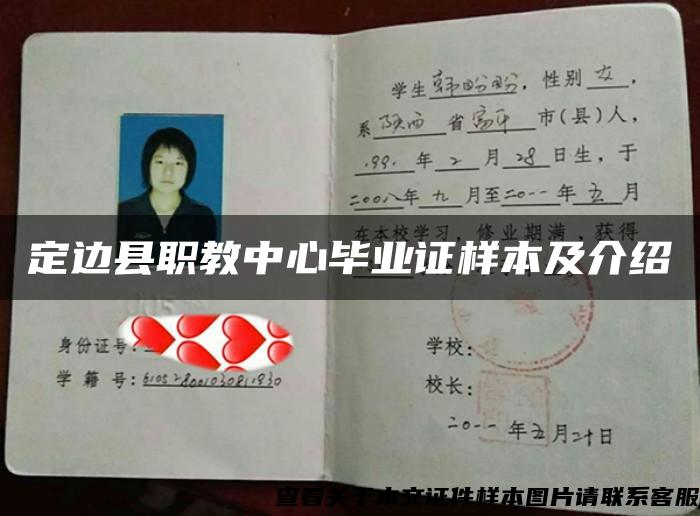 学生韩盼盼，性别女，
系陕西省富平市(县)人，
1991年2月28日生，于
二00八年九月至二0一一年五月
在本校学习，修业期满，获得
定边县职教中心毕业证样本及介绍
身份证号：
学籍号：
学校：
校长：
二0一一年五月二十日
查看关于本文证件样本图片请联系客服